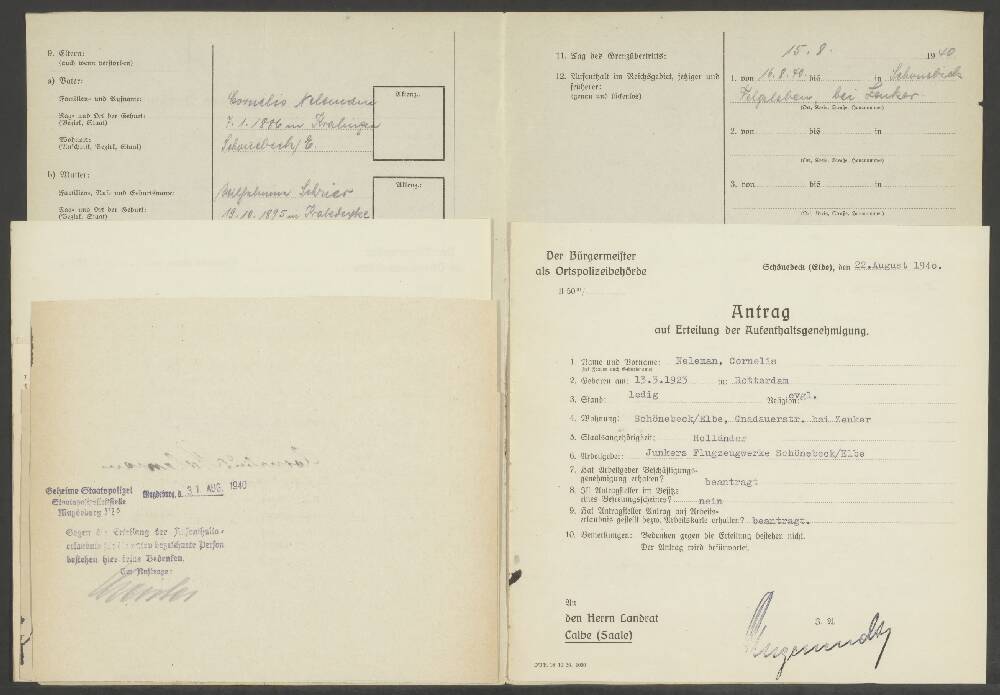 9. Eltern:
(auch wenn verstorben)
a) Vater:
Familien- und Rufname:
Cornelis Neleman
Tag- und Ort der Geburt:
(Bezirk, Staat)
7.1.1886 in Kralingen
Wohnort:
(Anschrift, Bezirk, Staat)
Schönebeck/E.
Allianz.:
b) Mutter:
Familien-, Ruf- und Geburtsname:
Wilhelmina Schrier
Tag- und Ort der Geburt:
(Bezirk, Staat)
19.10.1895 in
Allianz.:
11. Tag des Grenzübertritts:
15.8. 1940
12. Aufenthalt im Reichsgebiet, jetziger und
früherer:
(genau und lückenlos)
1. von 16.8.40. bis in Schönebeck
Felgeleben, bei Zenker
(Ort, Kreis, Straße, Hausnummer)
2. von bis in
(Ort, Kreis, Straße, Hausnummer)
3. von bis in
(Ort, Kreis, Straße, Hausnummer)
Geheime Staatspolizei
Staatspolizeileitstelle
Magdeburg
Magdeburg, d. 31. AUG. 1940
Gegen die Erteilung der Aufenthalts-
erlaubnis für umseitig bezeichnete Person
bestehen hier keine Bedenken.
Im Auftrage:
Der Bürgermeister
als Ortspolizeibehörde
II 50
Schönebeck (Elbe), den 22.August 1940.
Antrag
auf Erteilung der Aufenthaltsgenehmigung.
1. Name und Vorname: Neleman, Cornelis
(bei Frauen auch Geburtsname)
2. Geboren am: 13.3.1923 in: Rotterdam
3. Stand: ledig Religion: evgl.
4. Wohnung: Schönebeck/Elbe, Gnadauerstr. bei Zenker
5. Staatsangehörigkeit: Holländer
6. Arbeitgeber: Junkers Flugzeugwerke Schönebeck/Elbe
7. Hat Arbeitgeber Beschäftigungs-
genehmigung erhalten? beantragt
8. Ist Antragsteller im Besitze
eines Befreiungsscheines? nein
9. Hat Antragsteller Antrag auf Arbeits-
erlaubnis gestellt bezw. Arbeitskarte erhalten? beantragt.
10. Bemerkungen: Bedenken gegen die Erteilung bestehen nicht.
Der Antrag wird befürwortet.
An
den Herrn Landrat
Calbe (Saale)
I. A.